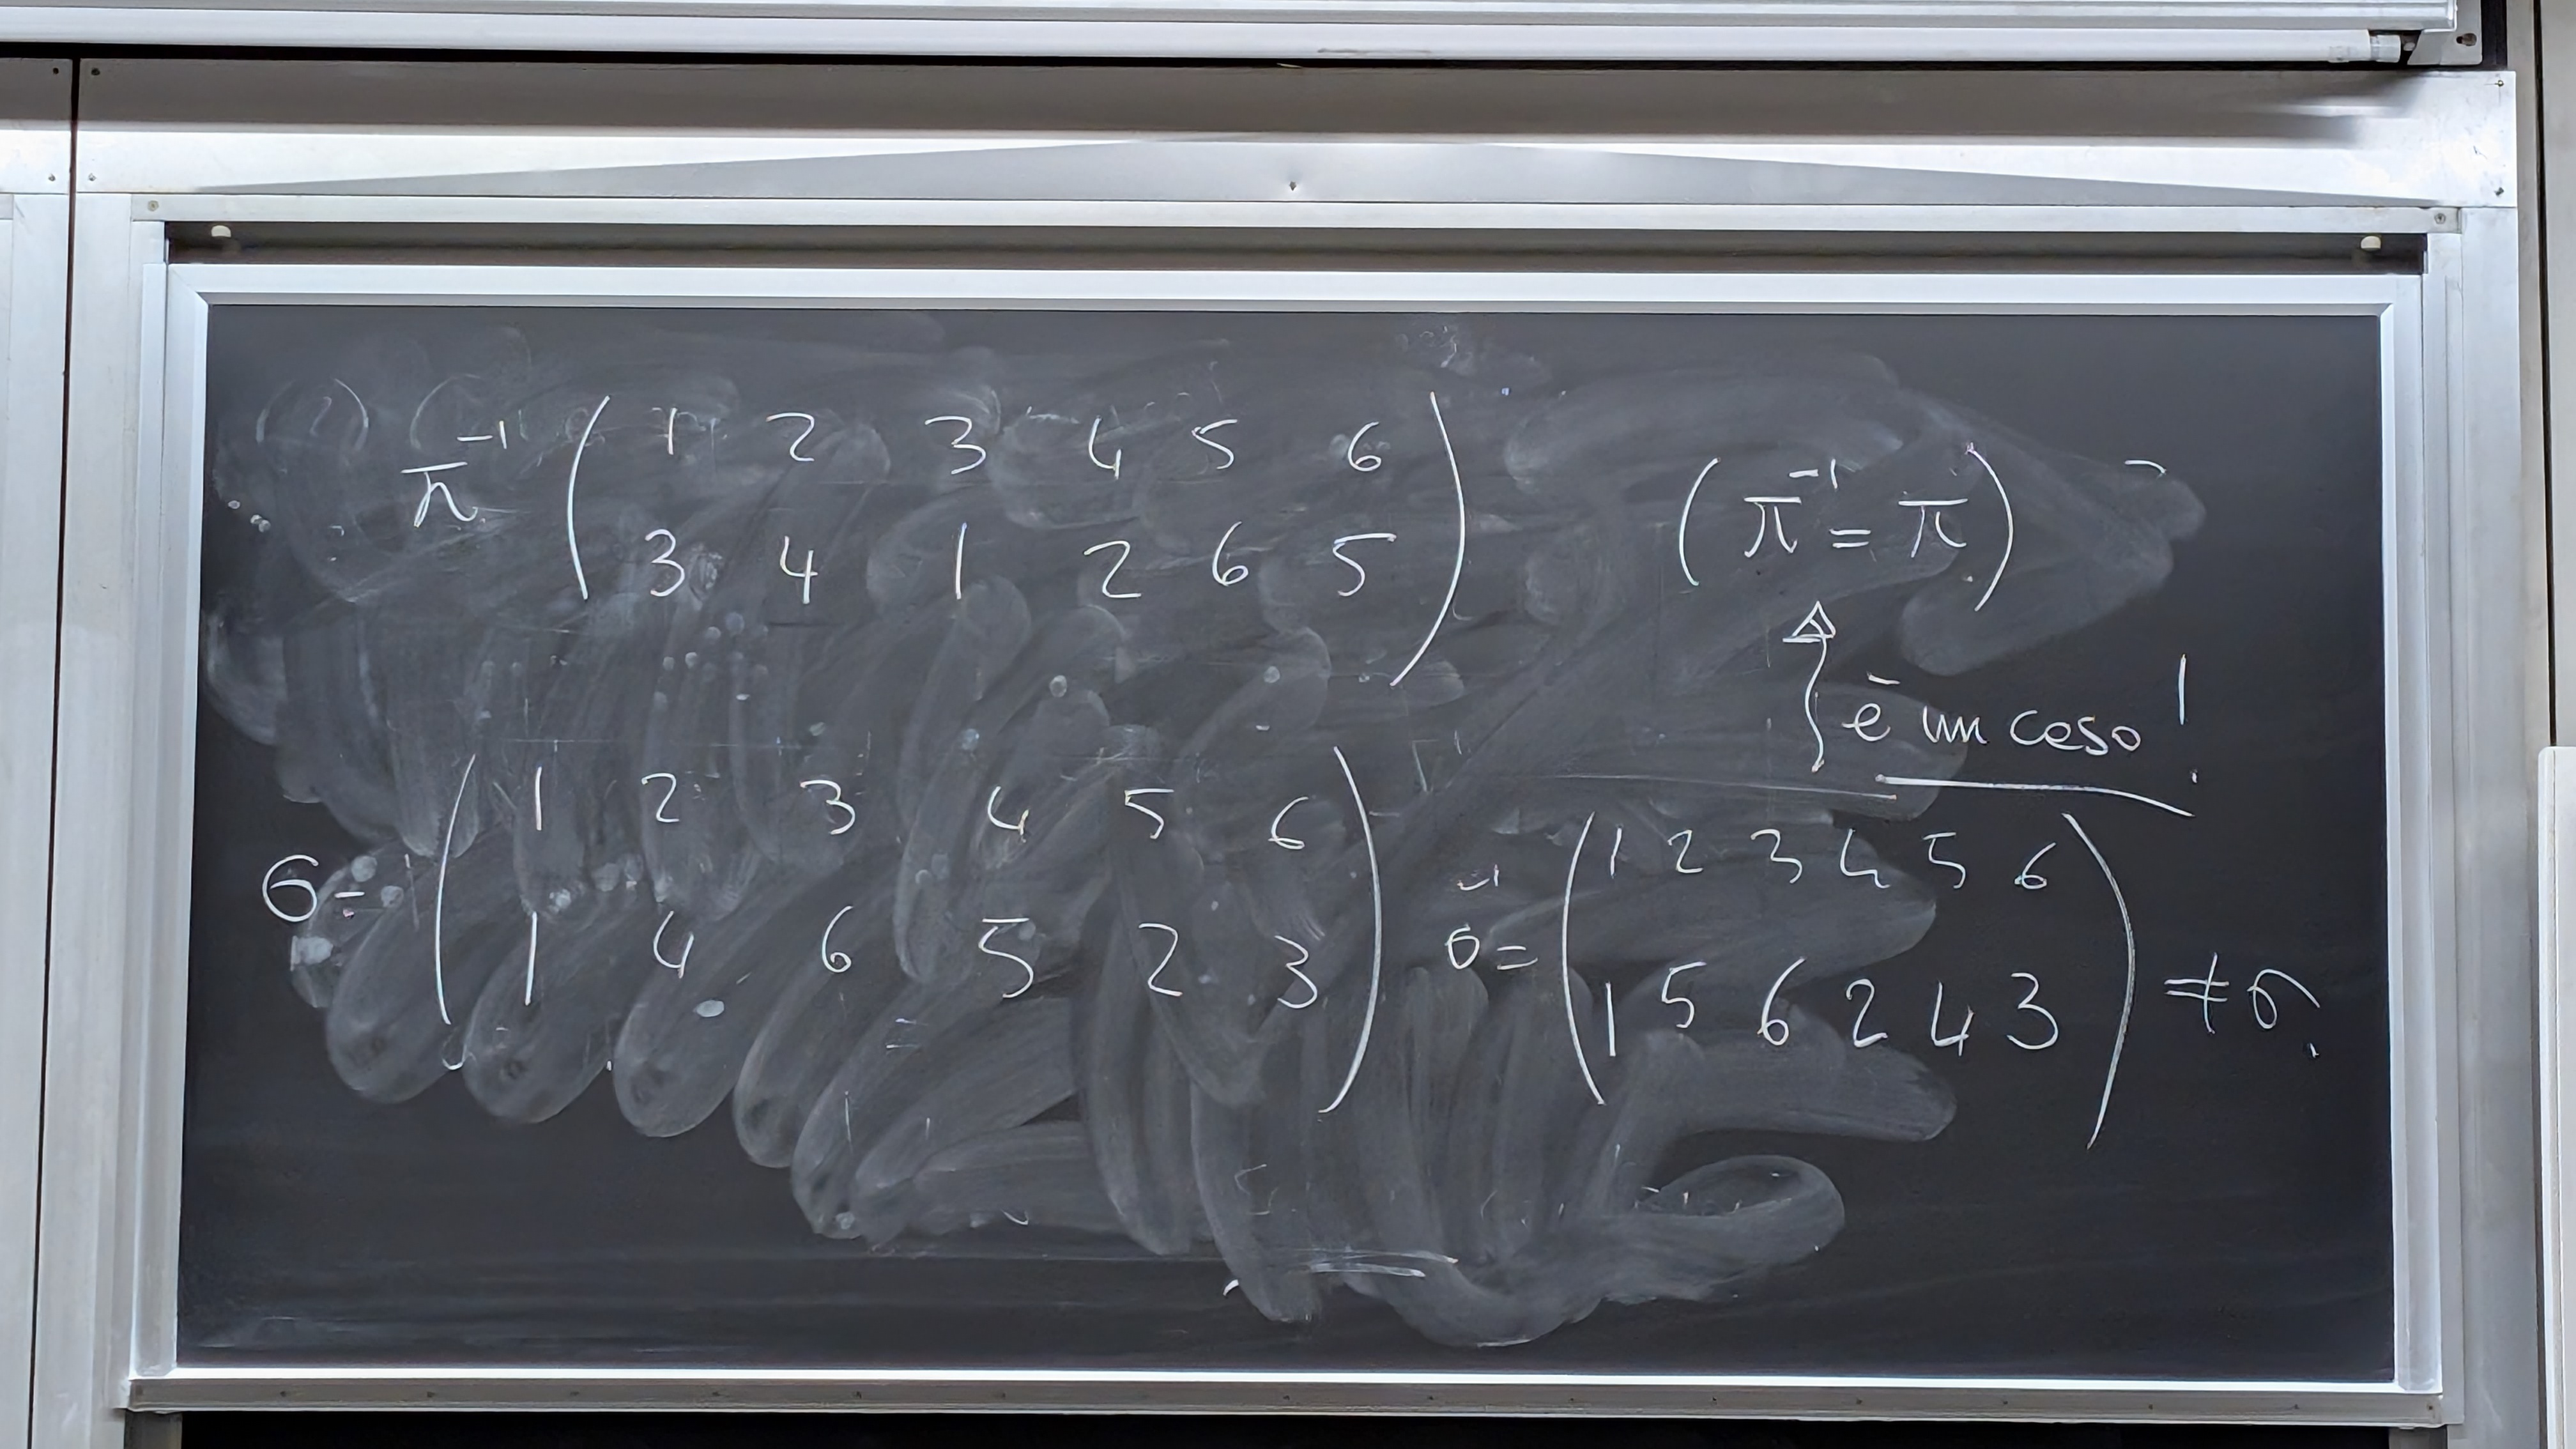 π⁻¹ ( 1 2 3 4 5 6 )
( 3 4 1 2 6 5 )
( π⁻¹ = π )
è un caso !
σ = ( 1 2 3 4 5 6 )
( 1 4 6 5 2 3 )
σ⁻¹ = ( 1 2 3 4 5 6 )
( 1 5 6 2 4 3 ) ≠ σ.